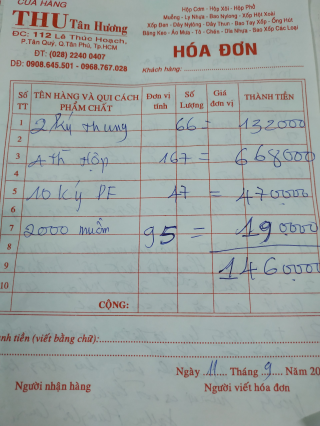 CỬA HÀNG
THU Tân Hương
ĐC: 112 Lê Thúc Hoạch,
P.Tân Quý, Q.Tân Phú, Tp.HCM
ĐT: (028) 2240 0407
DĐ: 0908.645.501 - 0968.767.028
Hộp Cơm - Hộp Xôi - Hộp Phở
Muỗng - Ly Nhựa - Bao Nylong - Xốp Hột Xoài
Xốp Bao - Dây Nylong - Dây Thun - Bao Tay Xốp - Ống Hơi
Băng Keo - Áo Mưa - Tô - Chén - Dĩa Nhựa - Bao Xốp Các Loại
HÓA ĐƠN
Khách hàng:
Số TT TÊN HÀNG VÀ QUI CÁCH PHẨM CHẤT Đơn vị tính Số Lượng Giá đơn vị THÀNH TIỀN
1 2 ký thung 66 = 132000
2
3 4th Hộp 167 = 668000
4
5 10 ký PE 47 = 470000
6
7 2000 muỗm 95 = 190000
8
9 1460000
10
CỘNG:
ành tiền (viết bằng chữ):
Ngày 11 Tháng 9 Năm 20
Người nhận hàng Người viết hóa đơn